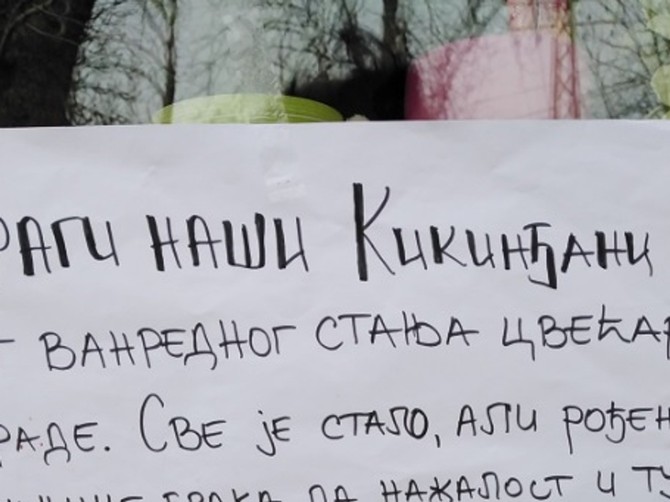 РАГИ НАШИ КИКИНЂАНИ
ВАНРЕДНОГ СТАЊА ЦВЕЋАР
РАДЕ. СВЕ ЈЕ СТАЛО, АЛИ РОЂЕН
БРАКА ПА НАЖАЛОСТ И ТУ